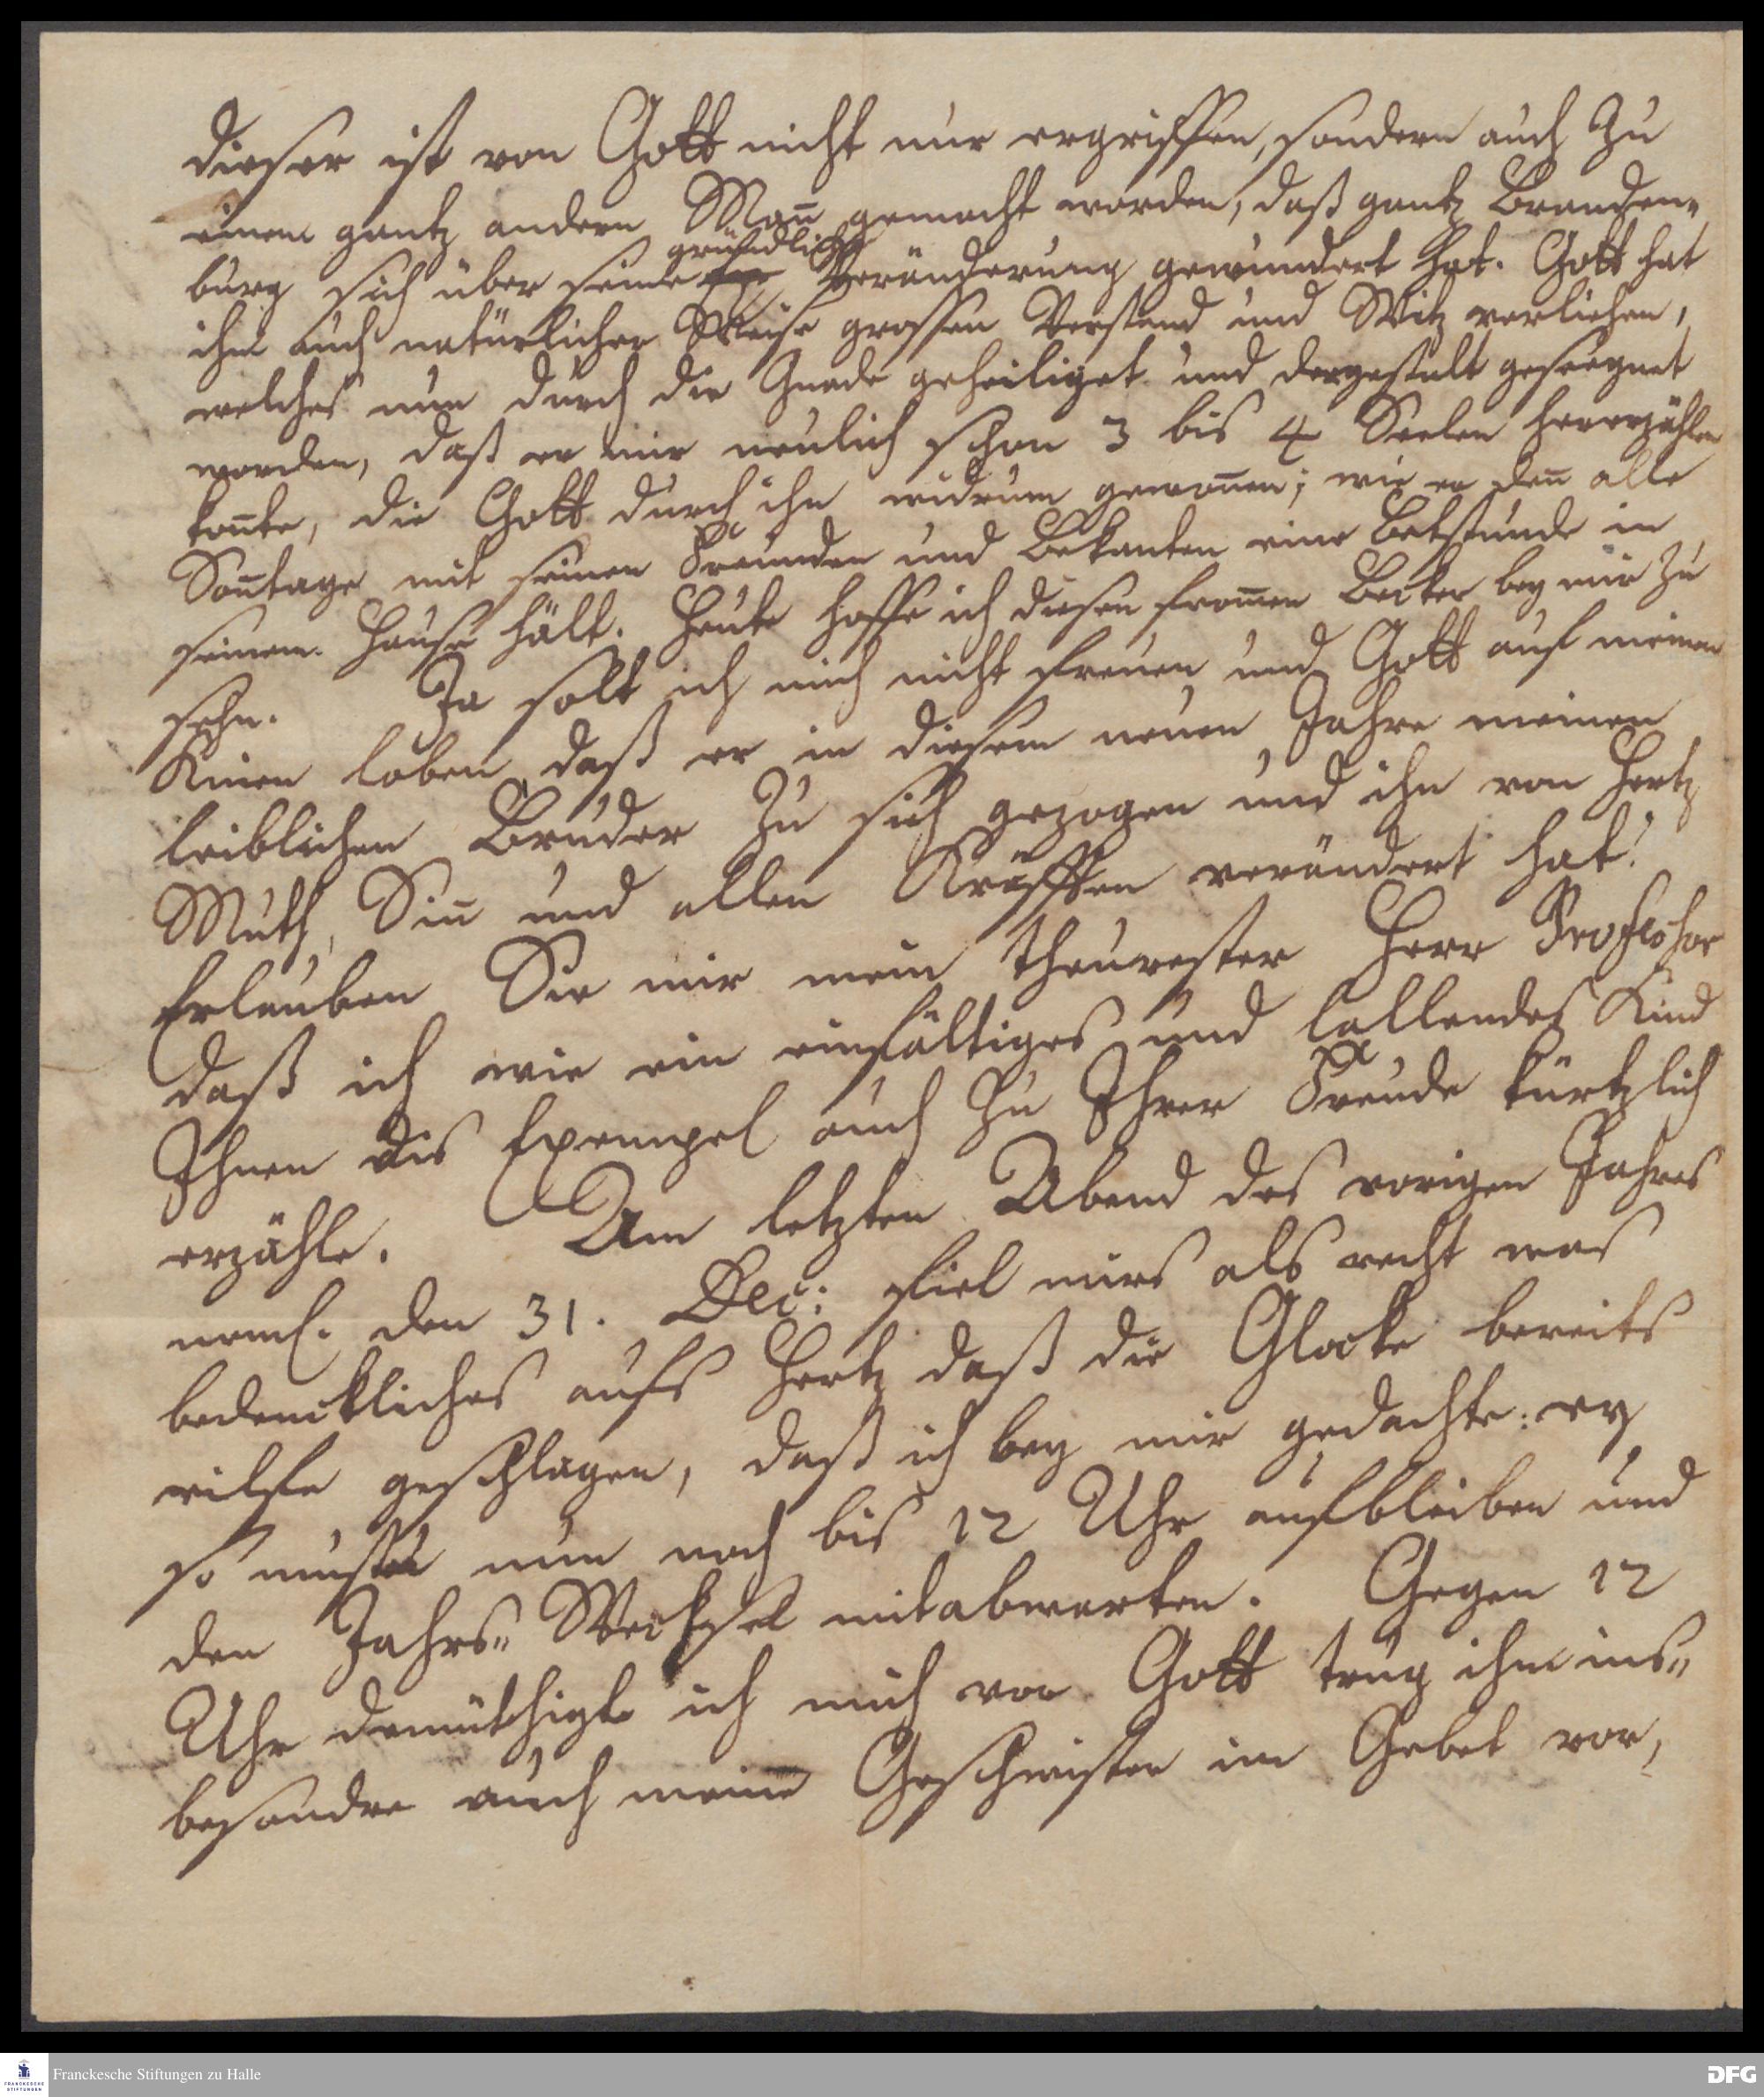 dieser ist von Gott nicht nur ergriffen, sondern auch zu
einem gantz andern Mañ gemacht worden, daß gantz Branden„
gründliche
burg sich über seine Veränderung gewundert hat. Gott hat
ihm auch natürlicher Weise grossen Verstand und Witz verliehen,
welches nun durch die Gnade geheiliget und dergestalt geseegnet
worden, daß er mir neulich schon 3 bis 4 Seelen hererzählen
koñte, die Gott durch ihn widrum gewoñen; wie er deñ alle
Soñtage mit seinen Freunden und Bekanten eine Betstunde in
seinem Hause hält. Heute hoffe ich diesen from̄en Becker bey mir zu
sehn. Ja solt ich mich nicht freuen und Gott auf meinen
Knien loben daß er in diesem neuen Jahre meinen
leiblichen Bruder zu sich gezogen und ihn von Hertz
Muth, Siñ und allen Kräfften verändert hat!
Erlauben Sie mir mein theurester Herr Professor
daß ich wie ein einfältiges und lallendes Kind
Ihnen dis Exempel auch zu Ihrer Freude kürtzlich
erzähle. Am letzten Abend des vorigen Jahres
neml. den 31. Dec: fiel mirs als recht was
bedenckliches aufs Hertz daß die Glocke bereits
eilfe geschlagen, daß ich bey mir gedachte: ey
so mustu nun noch bis 12 Uhr aufbleiben und
den Jahrs„ Wechsel mitabwarten. Gegen 12
Uhr demüthigte ich mich vor Gott trug ihm ins„
besondre auch meine Geschwister im Gebet vor,
Franckesche Stiftungen zu Halle
FRANCKESCHE STIFTUNGEN
DFG